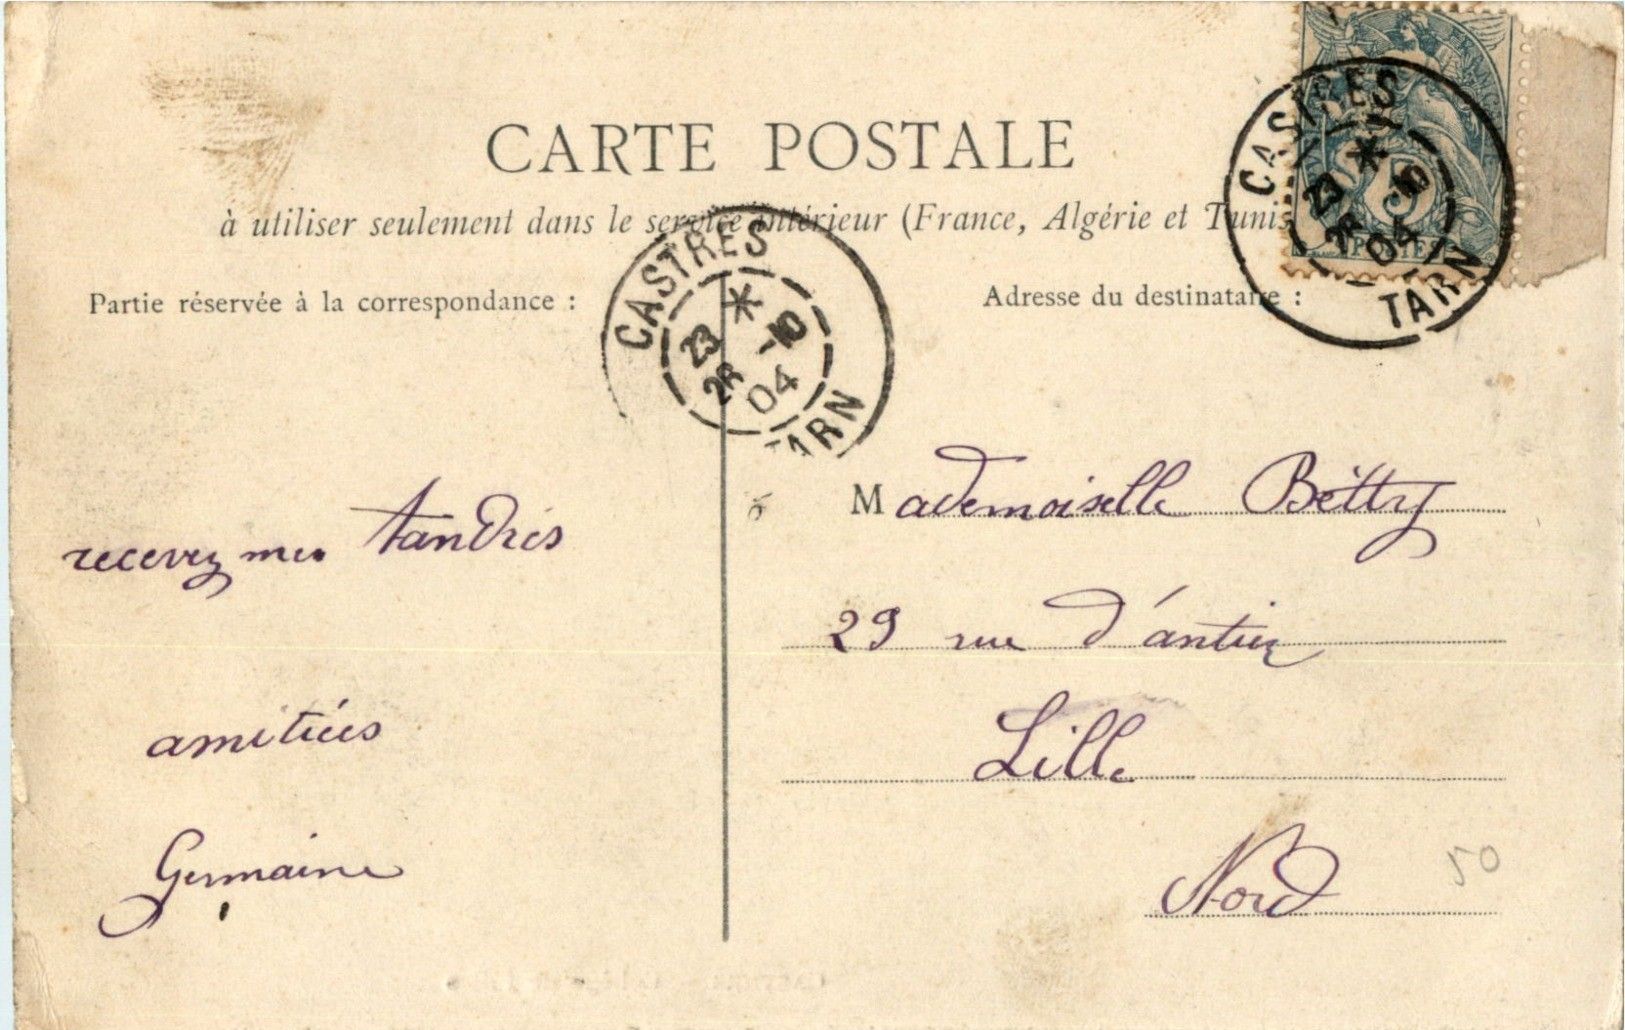 CARTE POSTALE
à utiliser seulement dans le service intérieur (France, Algérie et Tunis
Partie réservée à la correspondance :
Adresse du destinataire :
CASTRES
23 * -10
26 04
TARN
CASTRES
23 * -10
26 04
TARN
5
POSTES
recevez mes tandrés
amitiées
Germaine
Mademoiselle Bétty
29 rue d'antin
Lille
Nord
50